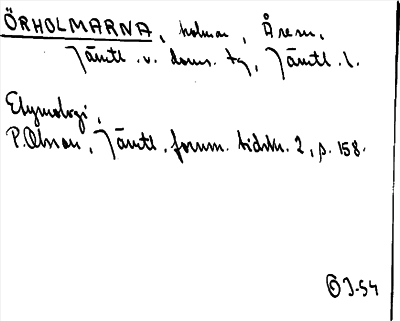 ÖRHOLMARNA, holmar, Åren,
Jämtl. v. doms. tg, Jämtl. l.
Etymologi,
P. Olsson, Jämtl. fornm. tidskr. 2, p. 158.
ÖJ-54